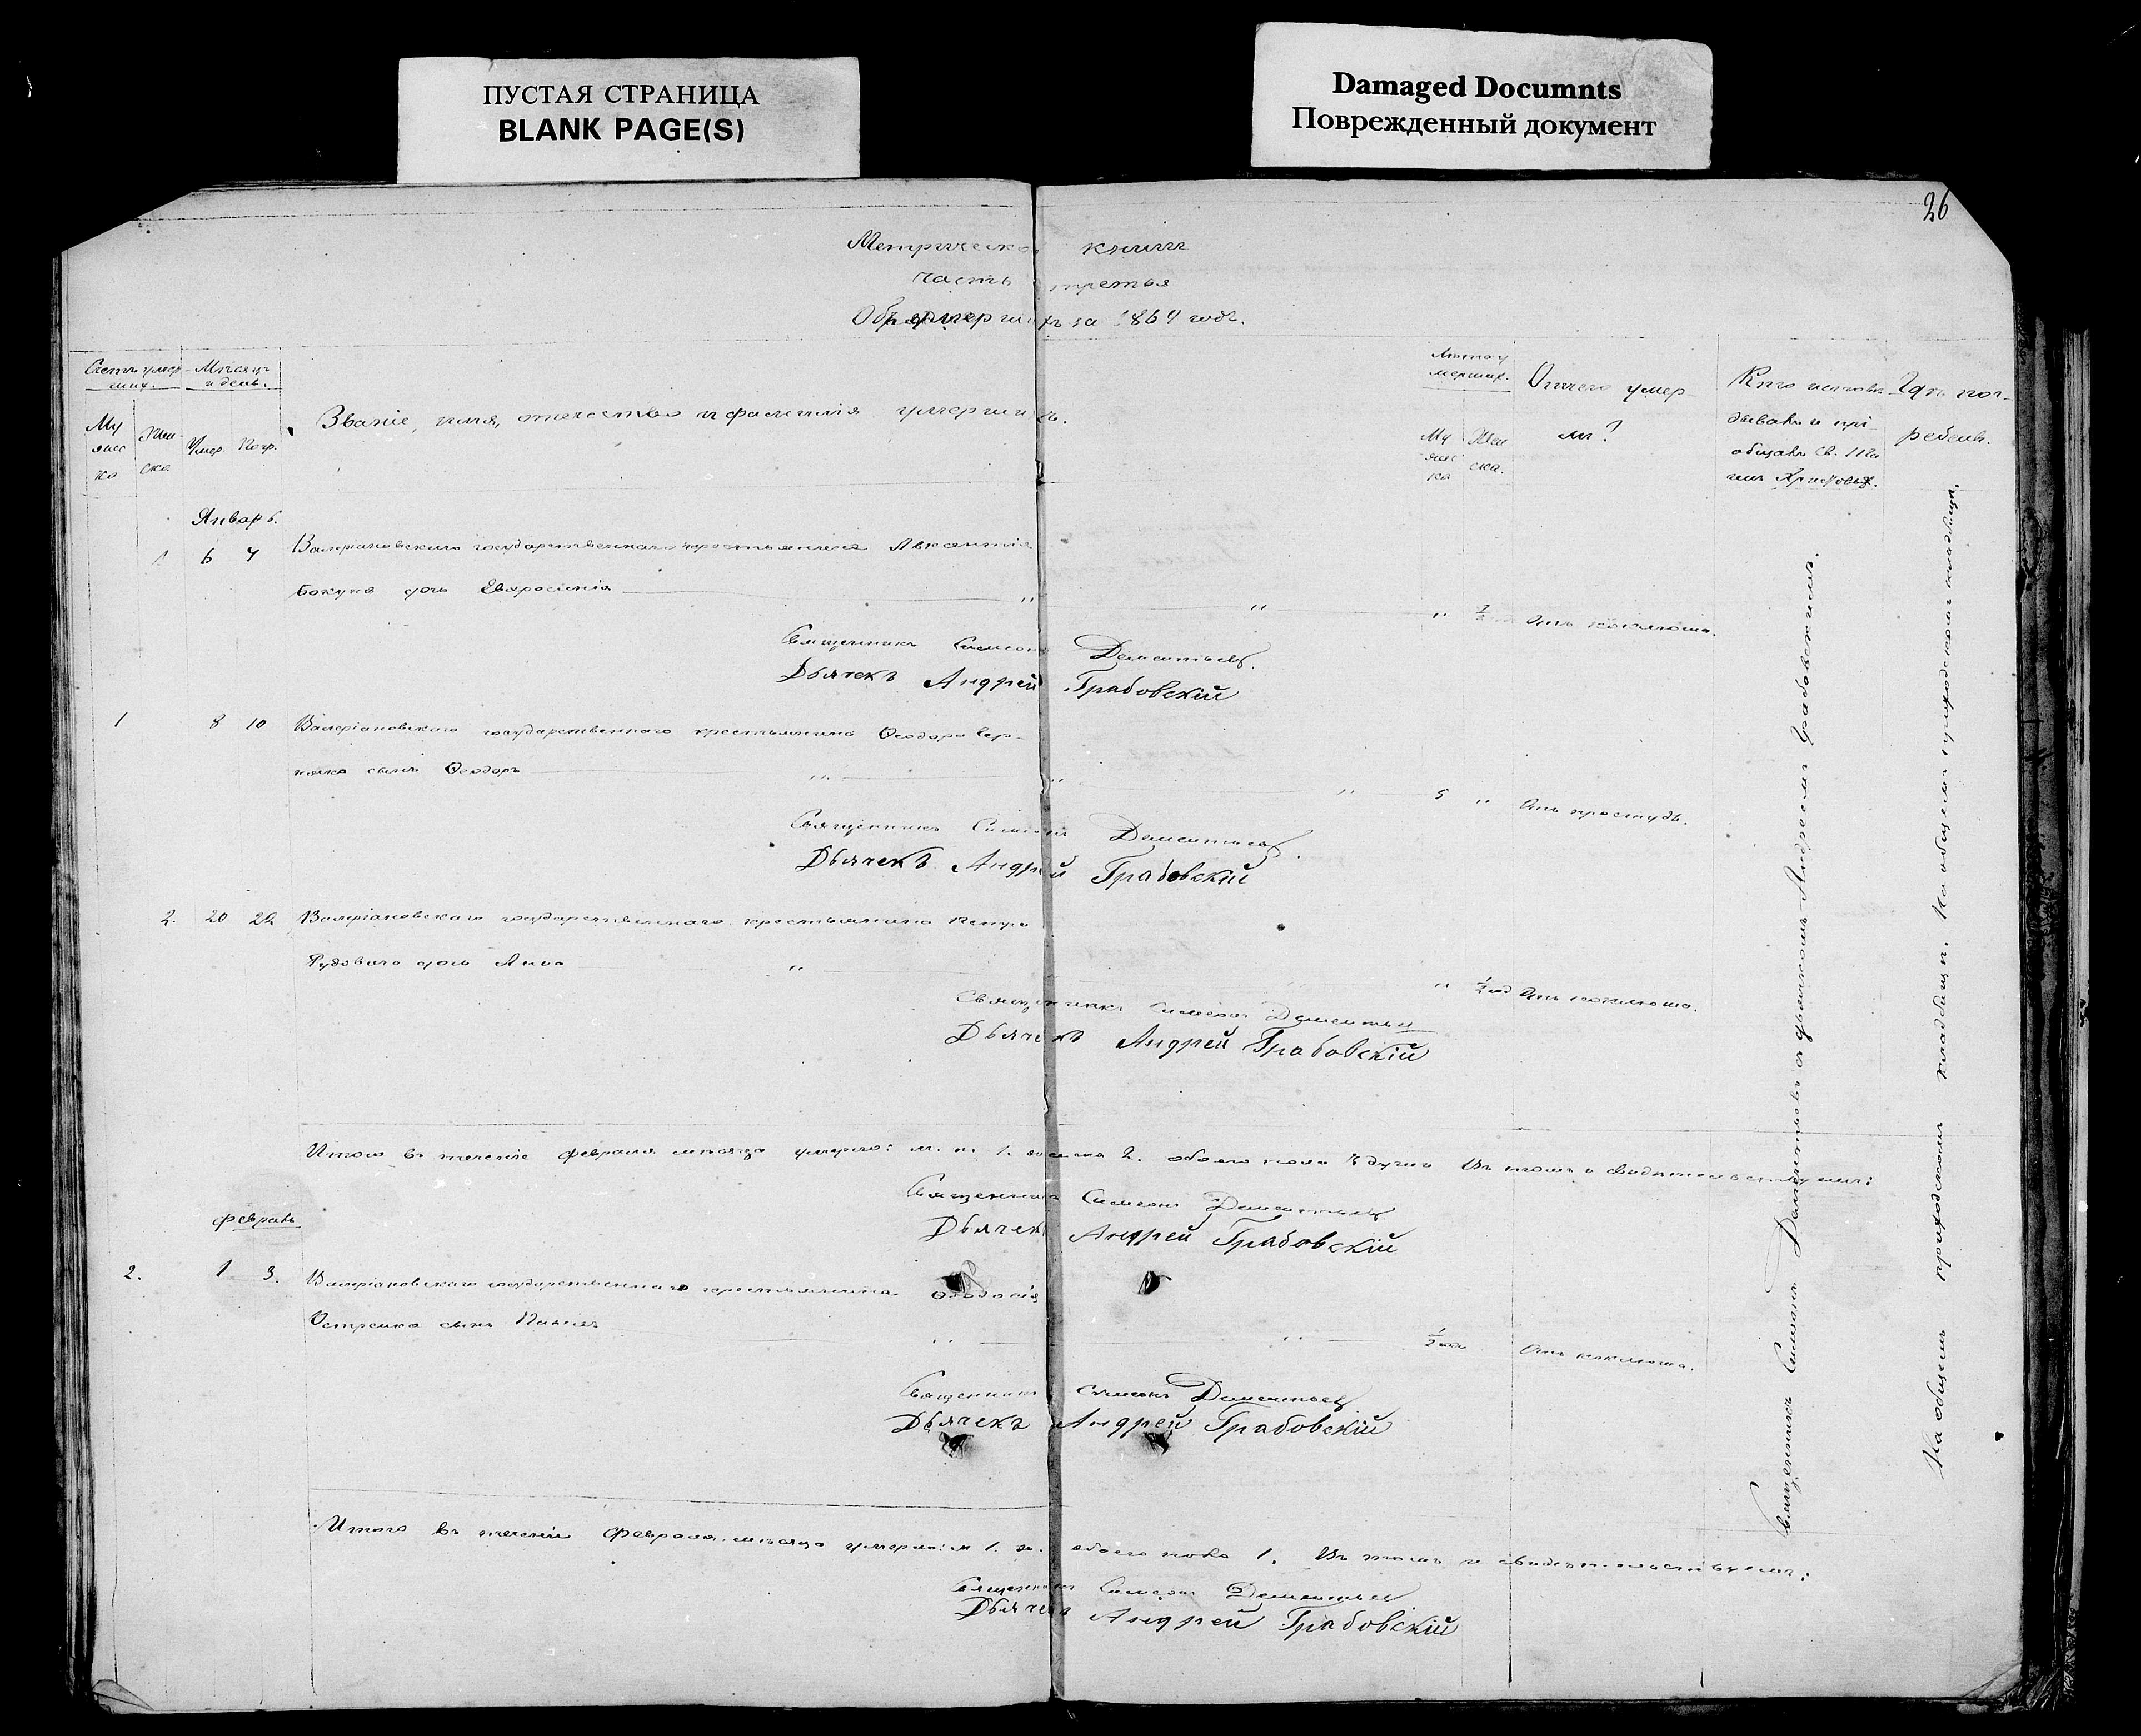 ПУСТАЯ СТРАНИЦА
BLANK PAGE(S)
Damaged Documnts
Поврежденный документ
26
Метрическо книги
часть третья
Объ умершихъ за 1864 годъ.
Счетъ умер
ших.
Мѣсяцъ
и день.
Му
жес
ка
Жен
ска
Умер. Погр.
Званіе, имя, отчество и фамилія умершихъ.
Лѣта у
мерших.
Му
жес
ка
Жен
ска.
Отчего умер
ли?
Кто исповѣ
дывалъ и прі
общалъ Св. Та
инъ Христовых.
Гдѣ пог
ребенъ.
Январь.
1 6 7 Валеріановского государственнаго крестьянина Авксентія
дочь Евфросинія " " " Отъ коклюша.
Священникъ Симеонъ Дементьевъ.
Дьячекъ Андрей Грабовскій
1 8 10 Валеріановского государственнаго крестьянина Ѳеодора
сынъ Ѳеодоръ " " " 5 " Отъ простуды.
Священникъ Симеонъ Дементьевъ.
Дьячекъ Андрей Грабовскій
2. 20 22 Валеріановскаго государственнаго крестьянина Петра
дочь Анна " " 1/2 год Отъ коклюша.
Священникъ Симеонъ Дементьев
Дьячекъ Андрей Грабовскій
Итого въ теченіе февраля мѣсяца умерло: м. п. 1. женска 2. обоего пола 3 души Въ томъ и свидѣтельствуемъ:
Священникъ Симеонъ Дементьевъ
Дьячекъ Андрей Грабовскій
Февраль
2. 1 3. Валеріановскаго государственнаго крестьянина Ѳеодосія
сынъ " " 1/2 года Отъ коклюша.
Священникъ Симеонъ Дементьевъ
Дьячекъ Андрей Грабовскій
Итого въ теченіе Февраля мѣсяца умерло: м 1. обоего пола 1. Въ томъ и свидѣтельствуемъ:
Священникъ Симеонъ Дементьев
Дьячекъ Андрей Грабовскій
Священникъ Симеонъ Дементьевъ съ дьячкомъ Андреемъ Грабовскимъ.
На общемъ приходскомъ кладбищѣ. На общемъ приходском кладбищѣ.